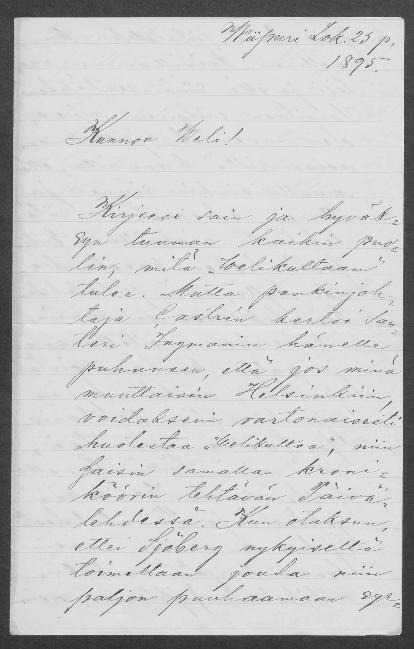 Wiipuri Lok. 25 p.
1895.
Kunnon Veli!
Kirjeesi sain ja hyväk=
syn tuuman kaikin puo=
lin, mitä „Velikultaan"
tulee. Mutta pankinjoh=
taja Castrén kertoi San=
teri Ingmanin hänelle
puhuneen, että jos minä
muuttaisin Helsinkiin,
voidakseni vartonaisesti
huolestaa „Velikultaa", niin
saisin samalla kroni=
köörin tehtävän Päivä=
lehdessä. Kun otaksun,
ettei Sjöberg nykyiseltä
toimeltaan jouda niin
paljon puuhaamaan syr=